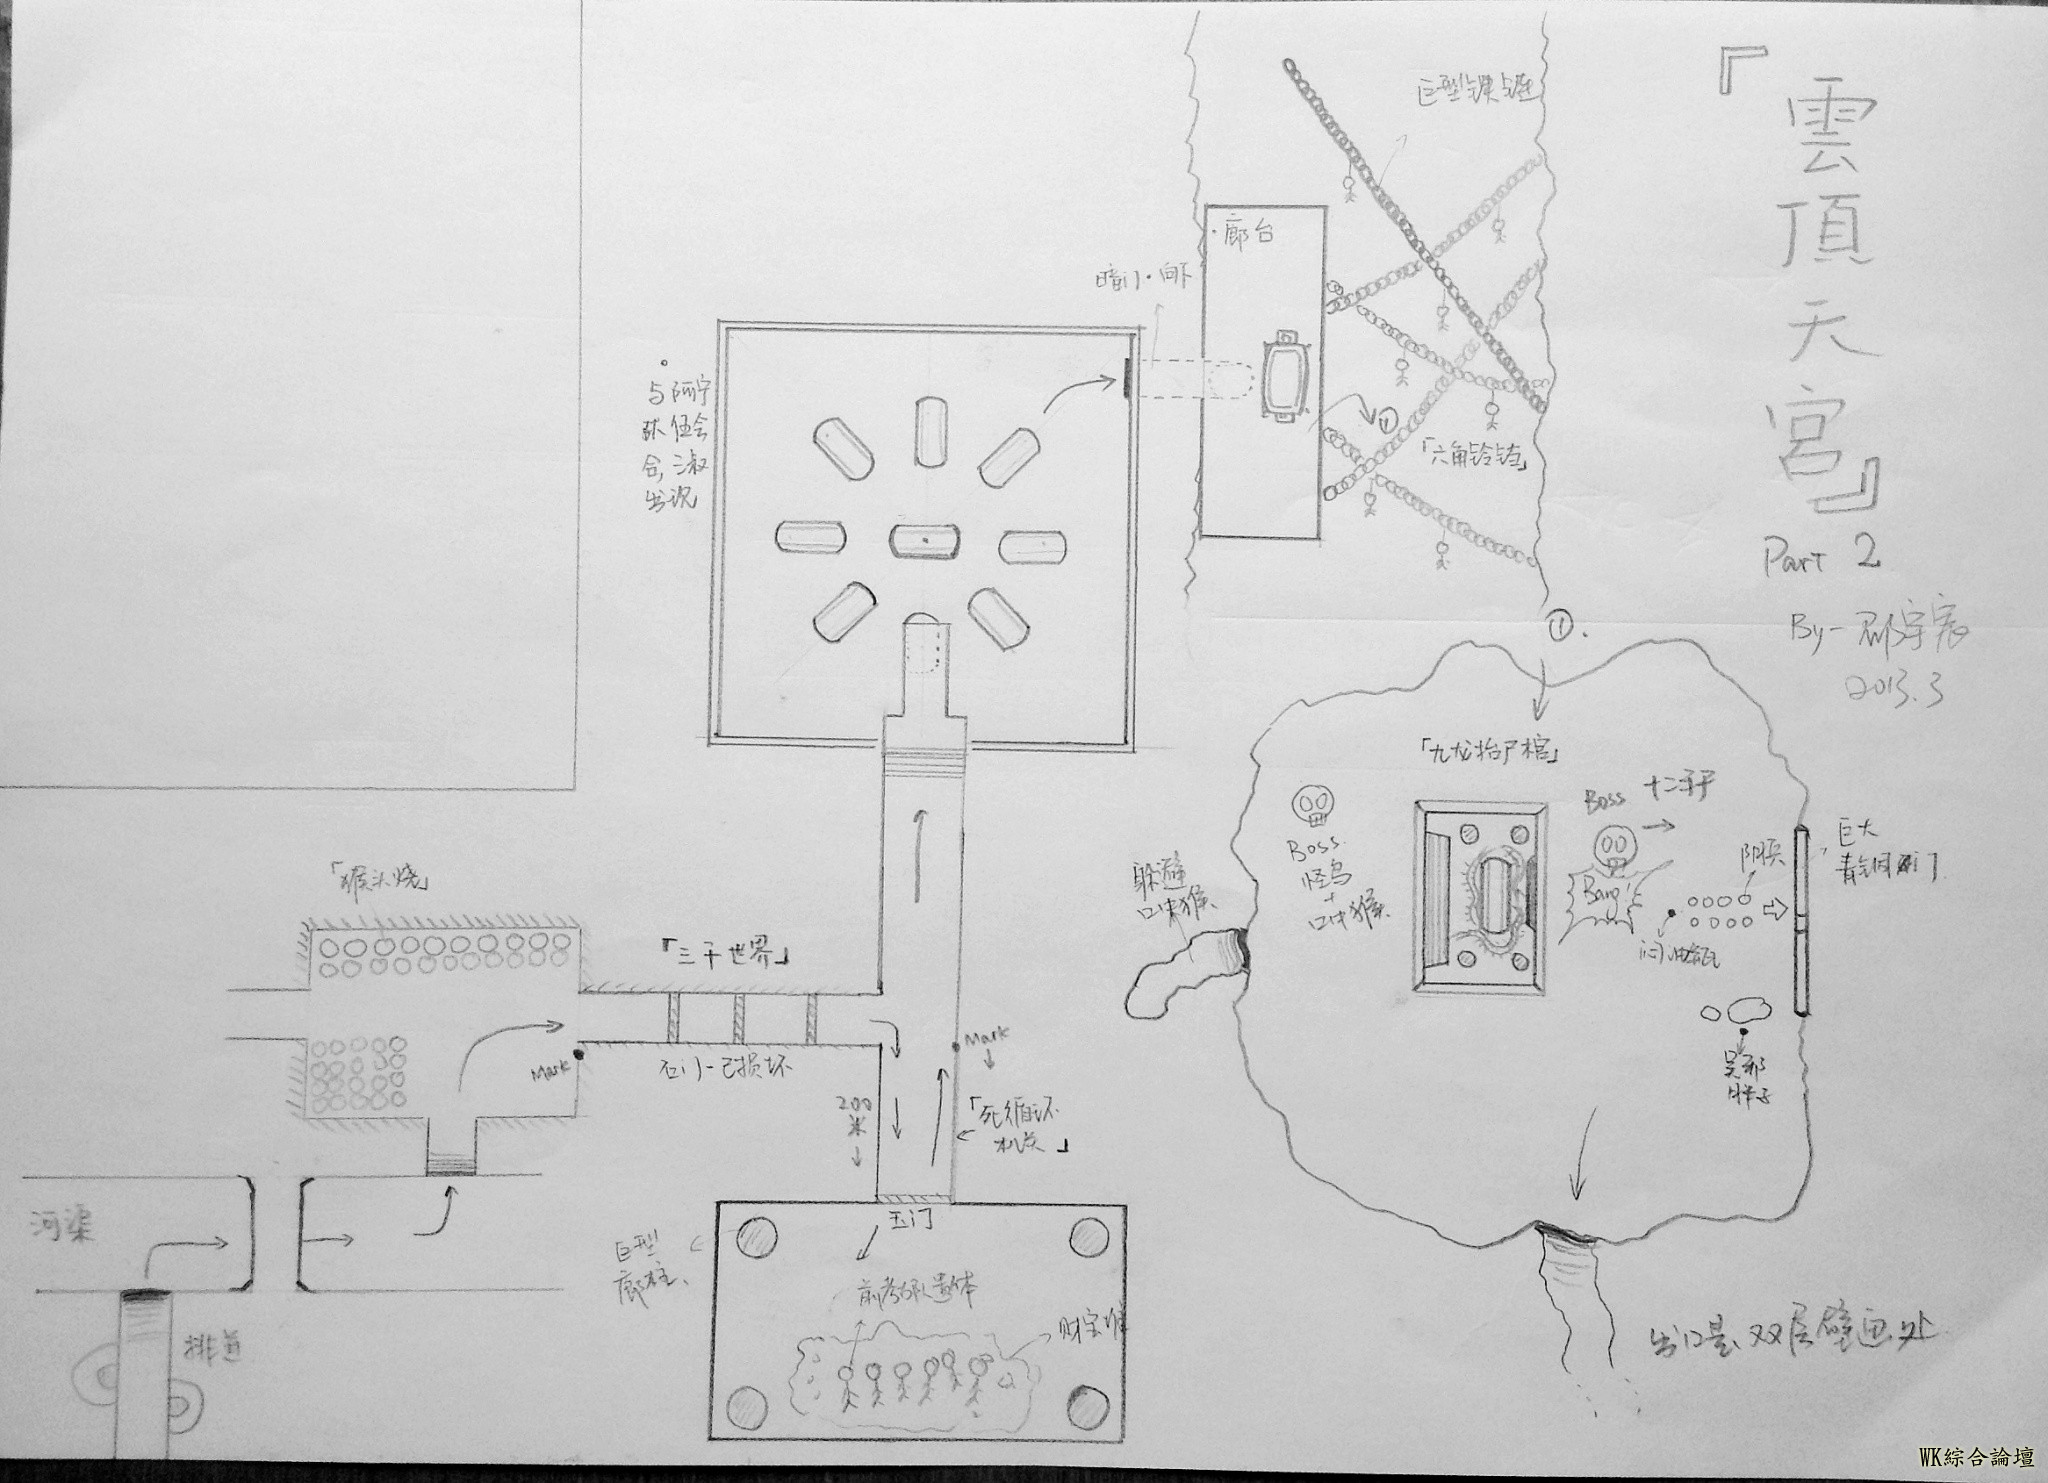 『雲頂天宮』
Part 2
By-邵宇宸
2013.3
巨型铁链
廊台
暗门·向下
「六角铃铛」
与阿宁
队伍会
合,三叔
出现
「猴头烧」
「三千世界」
石门-已损坏
Mark
Mark
200
米
「死循环
机关」
玉门
巨型
廊柱
前考古队遗体
财宝堆
河渠
排道
①
①
「九龙抬尸棺」
Boss
怪鸟
+
口中猴
躲避
口中猴
Boss
十二手
Bang!
阴兵
闷油瓶
巨大
青铜门
吴邪
胖子
出口是双层壁画处
WK綜合論壇